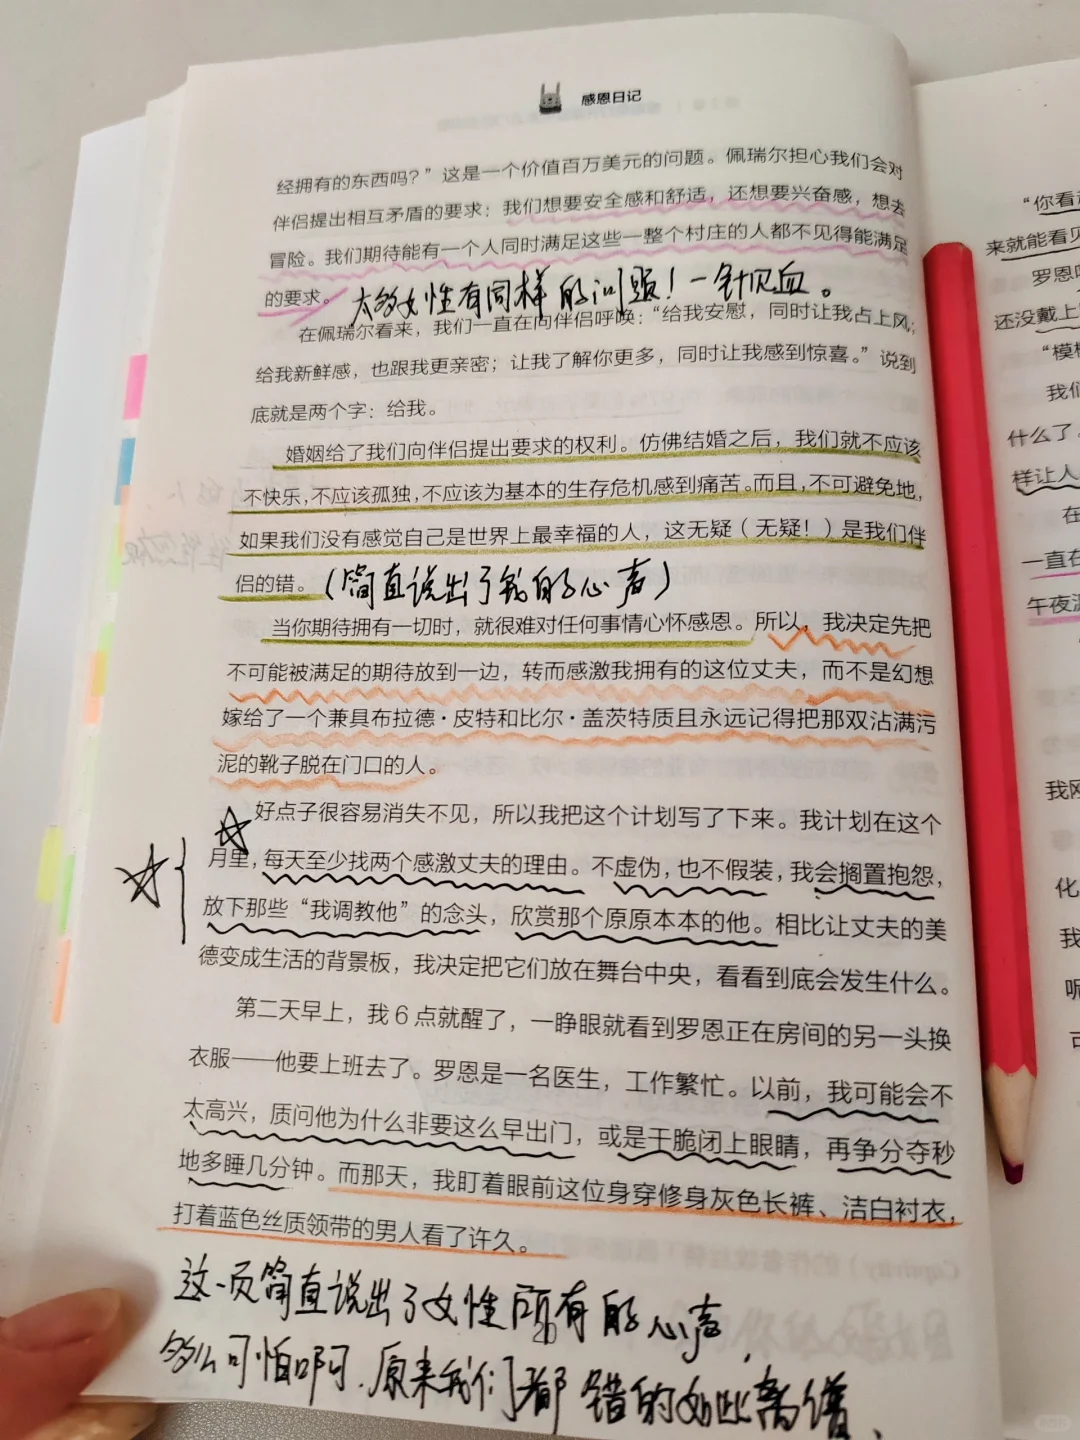 感恩日记
经拥有的东西吗？”这是一个价值百万美元的问题。佩瑞尔担心我们会对
伴侣提出相互矛盾的要求：我们想要安全感和舒适，还想要兴奋感，想去
冒险。我们期待能有一个人同时满足这些一整个村庄的人都不见得能满足
的要求。
太多女性有同样的问题！一针见血。
在佩瑞尔看来，我们一直在向伴侣呼唤：“给我安慰，同时让我占上风；
给我新鲜感，也跟我更亲密；让我了解你更多，同时让我感到惊喜。”说到
底就是两个字：给我。
婚姻给了我们向伴侣提出要求的权利。仿佛结婚之后，我们就不应该
不快乐，不应该孤独，不应该为基本的生存危机感到痛苦。而且，不可避免地，
如果我们没有感觉自己是世界上最幸福的人，这无疑（无疑！）是我们伴
侣的错。（简直说出了我的心声）
当你期待拥有一切时，就很难对任何事情心怀感恩。所以，我决定先把
不可能被满足的期待放到一边，转而感激我拥有的这位丈夫，而不是幻想
嫁给了一个兼具布拉德·皮特和比尔·盖茨特质且永远记得把那双沾满污
泥的靴子脱在门口的人。
好点子很容易消失不见，所以我把这个计划写了下来。我计划在这个
月里，每天至少找两个感激丈夫的理由。不虚伪，也不假装，我会搁置抱怨，
放下那些“我调教他”的念头，欣赏那个原原本本的他。相比让丈夫的美
德变成生活的背景板，我决定把它们放在舞台中央，看看到底会发生什么。
第二天早上，我6点就醒了，一睁眼就看到罗恩正在房间的另一头换
衣服——他要上班去了。罗恩是一名医生，工作繁忙。以前，我可能会不
太高兴，质问他为什么非要这么早出门，或是干脆闭上眼睛，再争分夺秒
地多睡几分钟。而那天，我盯着眼前这位身穿修身灰色长裤、洁白衬衣，
打着蓝色丝质领带的男人看了许久。
这一页简直说出了女性所有的心声
多么可怕啊，原来我们都错的如此离谱、
“你看
来就能看见
罗恩
还没戴上
“模
我们
什么了。
样让人
在
一直在
午夜
我刚
化
我
呢
可